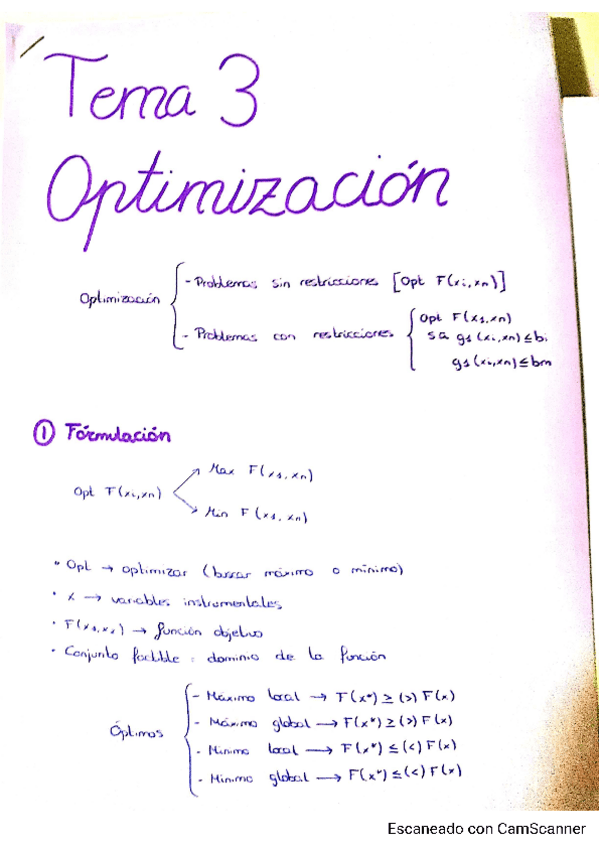 Tema 3
Optimización
Optimización
- Problemas sin restricciones [Opt F(xi,xn)]
- Problemas con restricciones
Opt F(x1,xn)
sa g1 (xi,xn) ≤ bi
g1 (xi,xn) ≤ bm
① Fórmulación
Opt F(xi,xn)
Max F(x1,xn)
Min F(x1,xn)
• Opt → optimizar (buscar máximo o mínimo)
• x → variables instrumentales
• F(x1,x2) → función objetivo
• Conjunto factible: dominio de la función
Óptimos
- Máximo local → F(x*) ≥ (>) F(x)
- Máximo global → F(x*) ≥ (>) F(x)
- Mínimo local → F(x*) ≤ (<) F(x)
- Mínimo global → F(x*) ≤ (<) F(x)
Escaneado con CamScanner